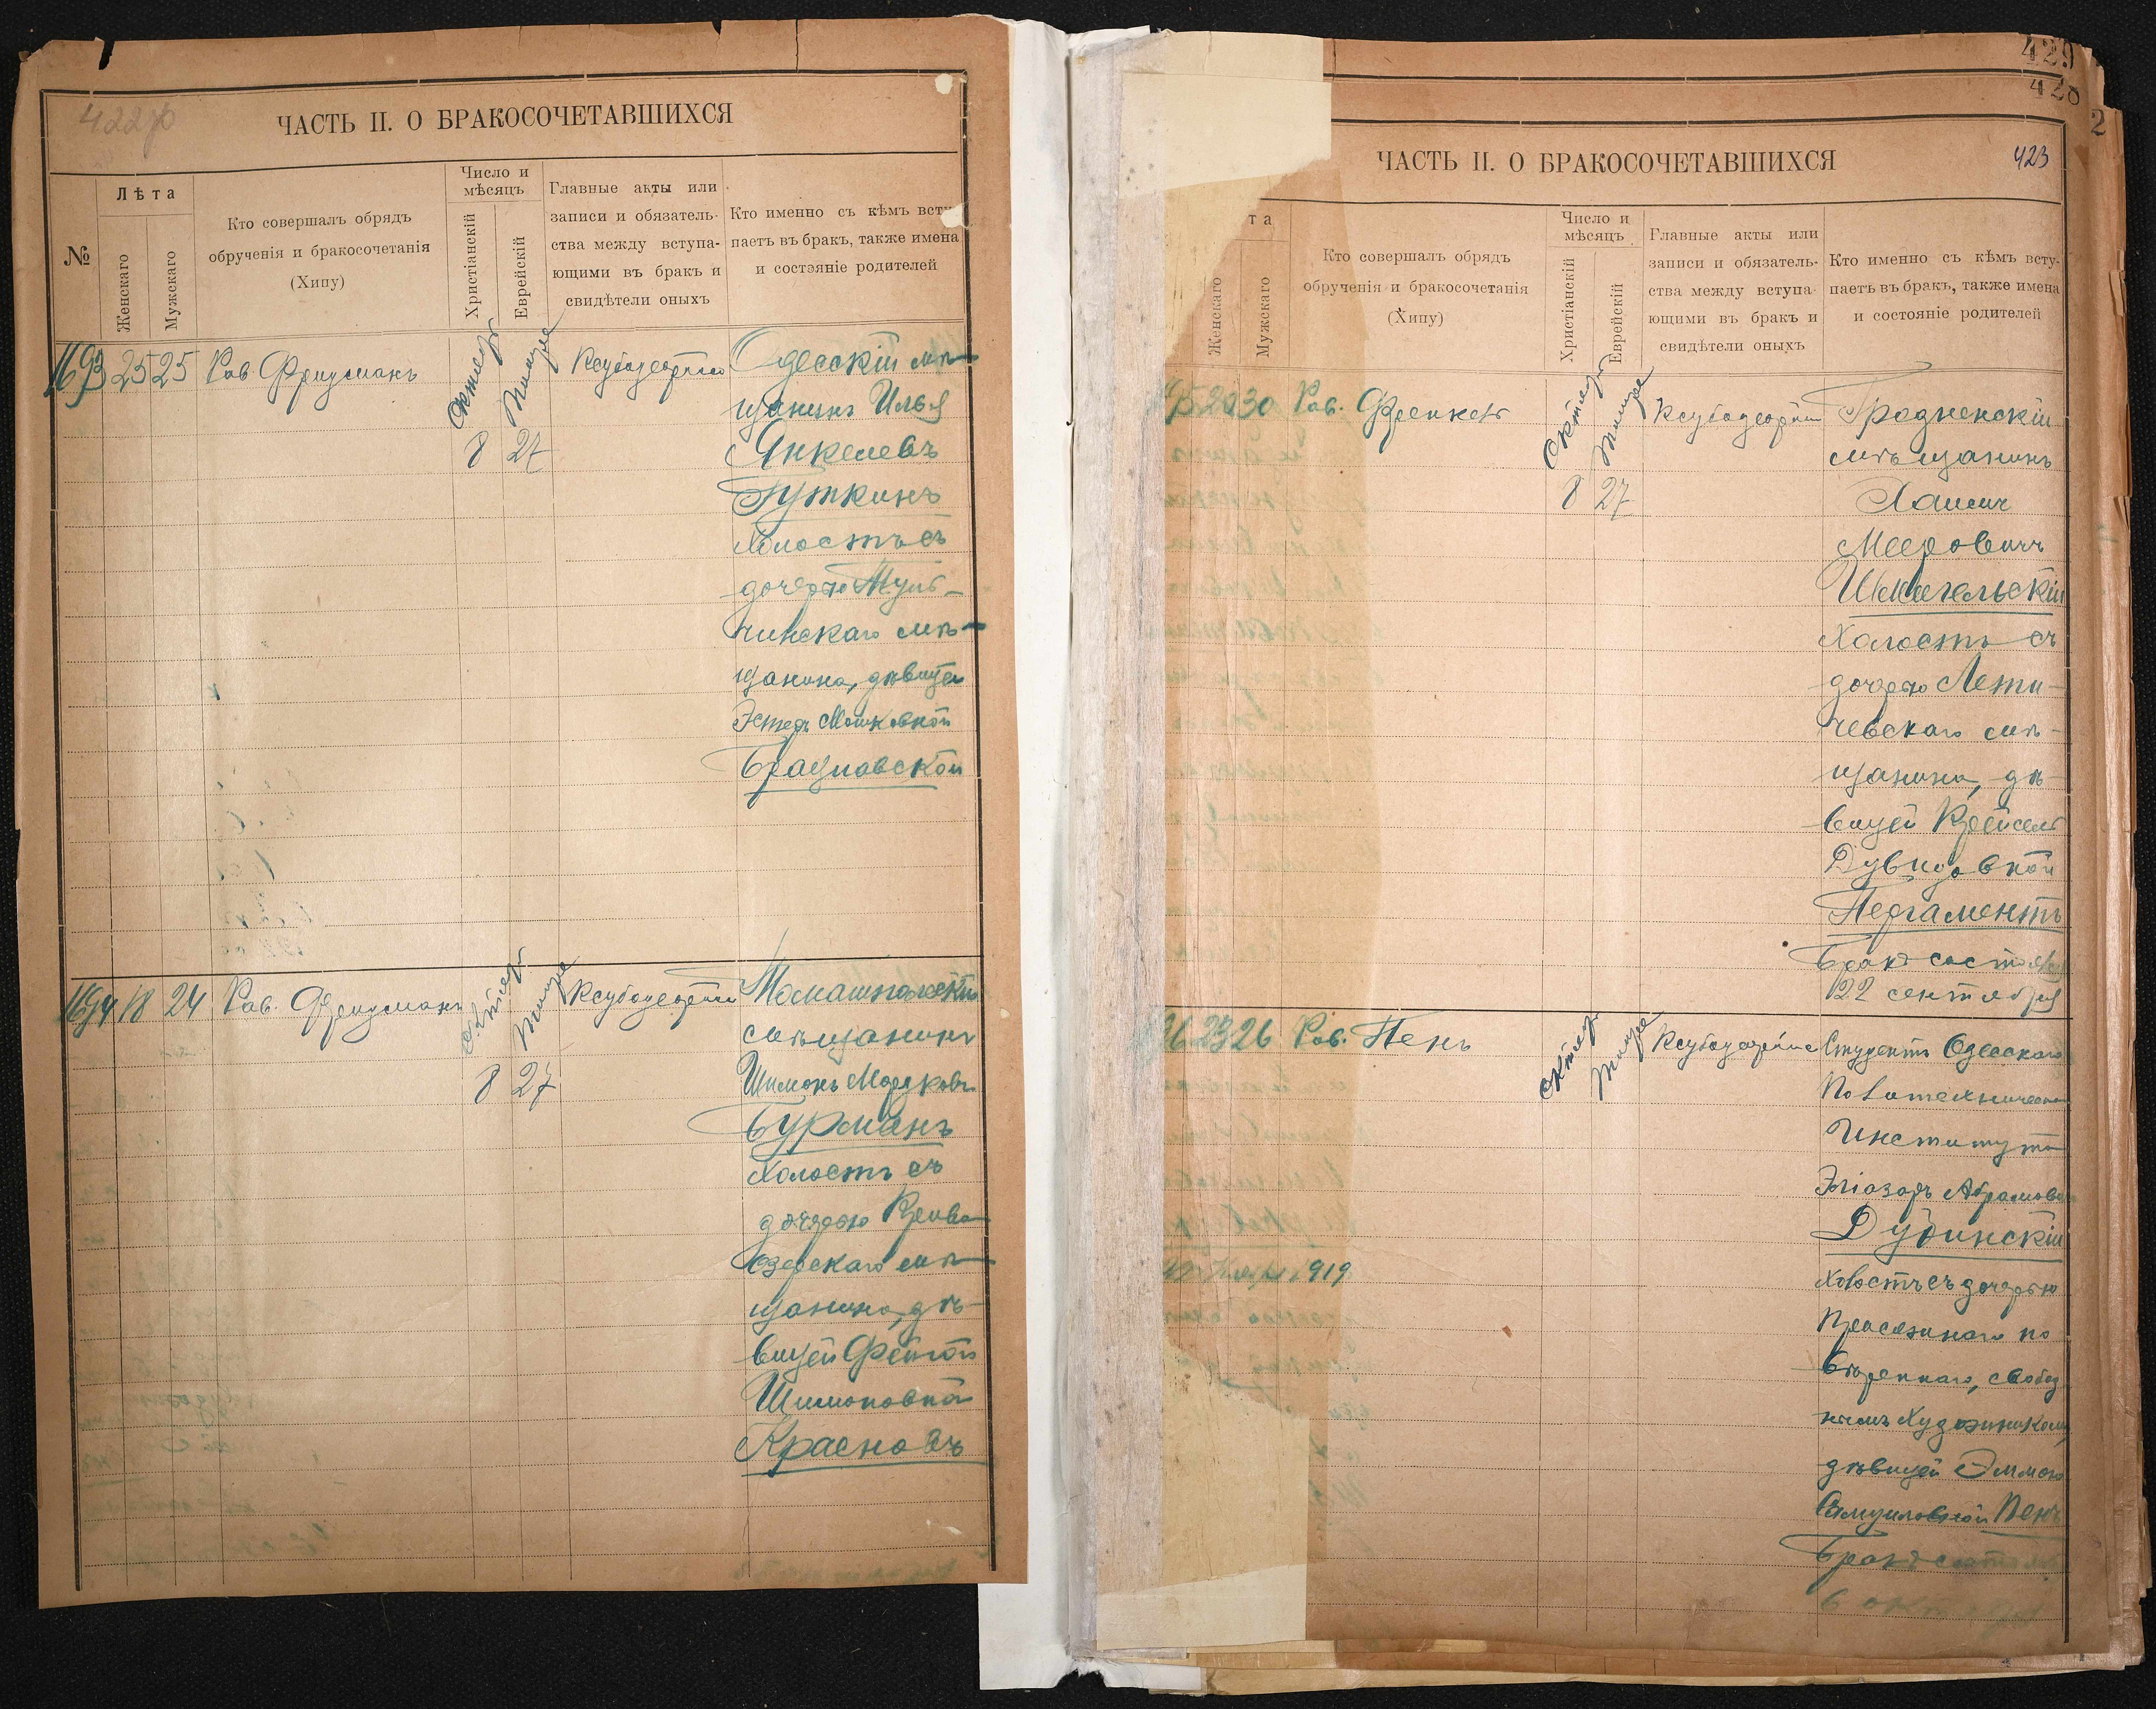 422об
ЧАСТЬ II. О БРАКОСОЧЕТАВШИХСЯ
№
Лѣта
Женскаго
Мужскаго
Кто совершалъ обрядъ
обрученія и бракосочетанія
(Хипу)
Число и
мѣсяцъ
Христіанскій
Еврейскій
Главные акты или
записи и обязатель-
ства между вступа-
ющими въ бракъ и
свидѣтели оныхъ
Кто именно съ кѣмъ всту-
паетъ въ бракъ, также имена
и состояніе родителей
1693 25 25 Рав Фридманъ
8 27
Одесскій мѣ-
щанинъ Илья
Янкелевъ
Гуткинъ
холостъ съ
дочерью Туль-
чинскаго мѣ-
щанина, дѣвицей
Эстеръ Мошковной
Брацлавской
1694 18 24 Рав. Фридманъ
8 27
мѣщанинъ
Шимонъ Мордковъ
Бурманъ
холостъ съ
дочерью Криво
Озерскаго мѣ-
щанина, дѣ-
вицей Фейгой
Шимоновной
Красновъ
429
428
2
423
ЧАСТЬ II. О БРАКОСОЧЕТАВШИХСЯ
та
Женскаго
Мужскаго
Кто совершалъ обрядъ
обрученія и бракосочетанія
(Хипу)
Число и
мѣсяцъ
Христіанскій
Еврейскій
Главные акты или
записи и обязатель-
ства между вступа-
ющими въ бракъ и
свидѣтели оныхъ
Кто именно съ кѣмъ всту-
паетъ въ бракъ, также имена
и состояніе родителей
30 Рав.
8 27
Гродненскій
мѣщанинъ
Мееровичъ
холостъ съ
дочерью Лети-
чевскаго мѣ-
щанина, дѣ-
вицей Крейсель
Дувидовной
Пергаментъ
Бракъ состоялся
22 сентября
96 23 26 Рав. Пенъ
Студентъ Одесскаго
Политехническаго
Института
Эліазаръ Абрамовъ
Дубинскій
холостъ съ дочерью
Присяжнаго по
вѣреннаго, свобод
нымъ художникомъ,
дѣвицей Эммою
Самуиловной Пенъ
Бракъ состоялся
6 октября
1919